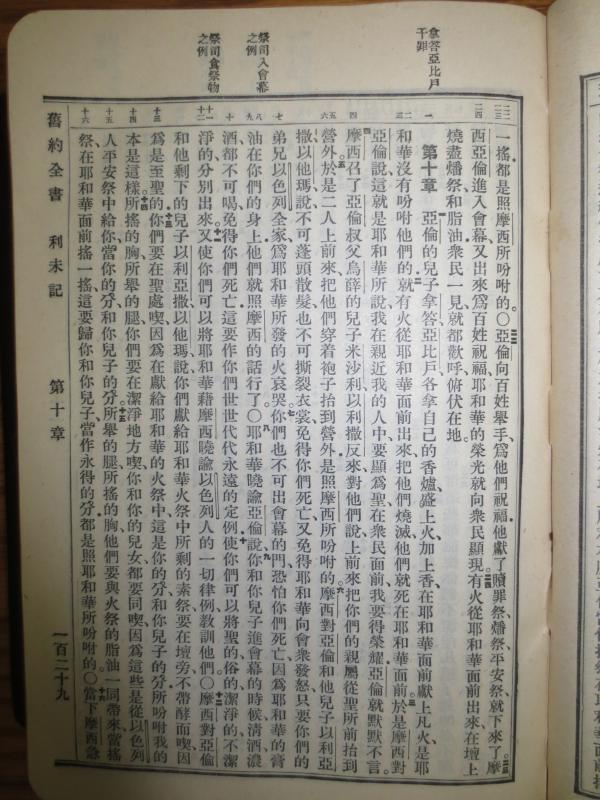 拿答亞比戶
干罪
祭司入會幕
之例
祭司食祭物
之例
一搖都是照摩西所吩咐的○亞倫向百姓舉手爲他們祝福他獻了贖罪祭燔祭平安祭就下來了摩
西亞倫進入會幕又出來爲百姓祝福耶和華的榮光就向衆民顯現有火從耶和華面前出來在壇上
燒盡燔祭和脂油衆民一見就都歡呼俯伏在地
第十章 亞倫的兒子拿答亞比戶各拿自己的香爐盛上火加上香在耶和華面前獻上凡火是耶
和華沒有吩咐他們的就有火從耶和華面前出來把他們燒滅他們就死在耶和華面前於是摩西對
亞倫說這就是耶和華所說我在親近我的人中要顯爲聖在衆民面前我要得榮耀亞倫就默默不言
摩西召了亞倫叔父烏薛的兒子米沙利以利撒反來對他們說上前來把你們的親屬從聖所前抬到
營外於是二人上前來把他們穿着袍子抬到營外是照摩西所吩咐的摩西對亞倫和他兒子以利亞
撒以他瑪說不可蓬頭散髮也不可撕裂衣裳免得你們死亡又免得耶和華向會衆發怒只要你們的
弟兄以色列全家爲耶和華所發的火哀哭你們也不可出會幕的門恐怕你們死亡因爲耶和華的膏
油在你們的身上他們就照摩西的話行了○耶和華曉諭亞倫說你和你兒子進會幕的時候清酒濃
酒都不可喝免得你們死亡這要作你們世世代代永遠的定例使你們可以將聖的俗的潔淨的不潔
淨的分別出來又使你們可以將耶和華藉摩西曉諭以色列人的一切律例教訓他們○摩西對亞倫
和他剩下的兒子以利亞撒以他瑪說你們獻給耶和華火祭中所剩的素祭要在壇旁不帶酵而喫因
爲是至聖的你們要在聖處喫因爲在獻給耶和華的火祭中這是你的分和你兒子的分所吩咐我的
本是這樣所搖的胸所舉的腿你們要在潔淨地方喫你和你的兒女都要同喫因爲這些是從以色列
人平安祭中給你當你的分和你兒子的分所舉的腿所搖的胸他們要與火祭的脂油一同帶來當搖
祭在耶和華面前搖一搖這要歸你和你兒子當作永得的分都是照耶和華所吩咐的○當下摩西急
舊約全書 利未記 第十章 一百二十九